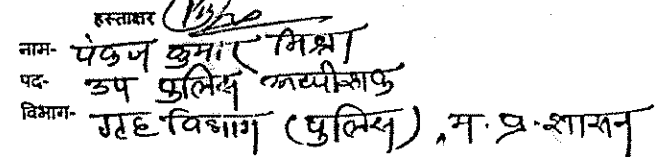 हस्ताक्षर
नाम- पंकज कुमार मिश्रा
पद- उप पुलिस अधीक्षक
विभाग- गृह विभाग (पुलिस), म. प्र. शासन